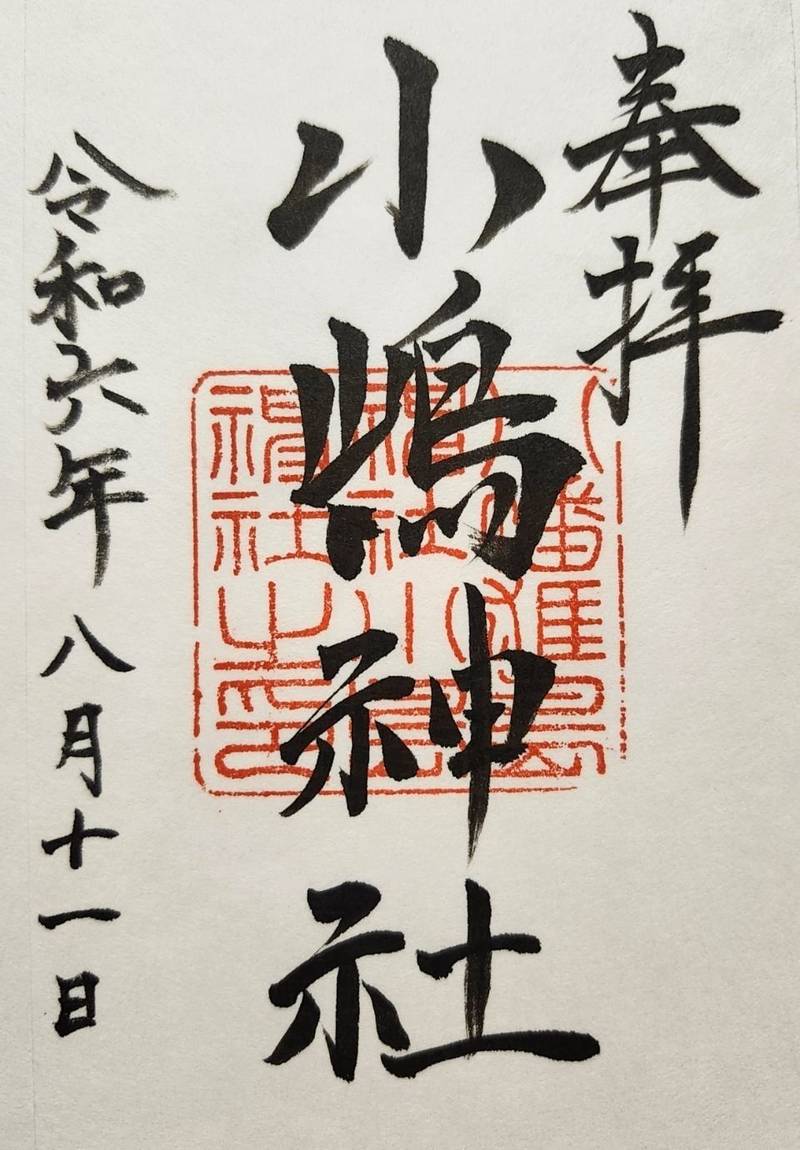 奉拝
小嶋神社
令和六年八月十一日